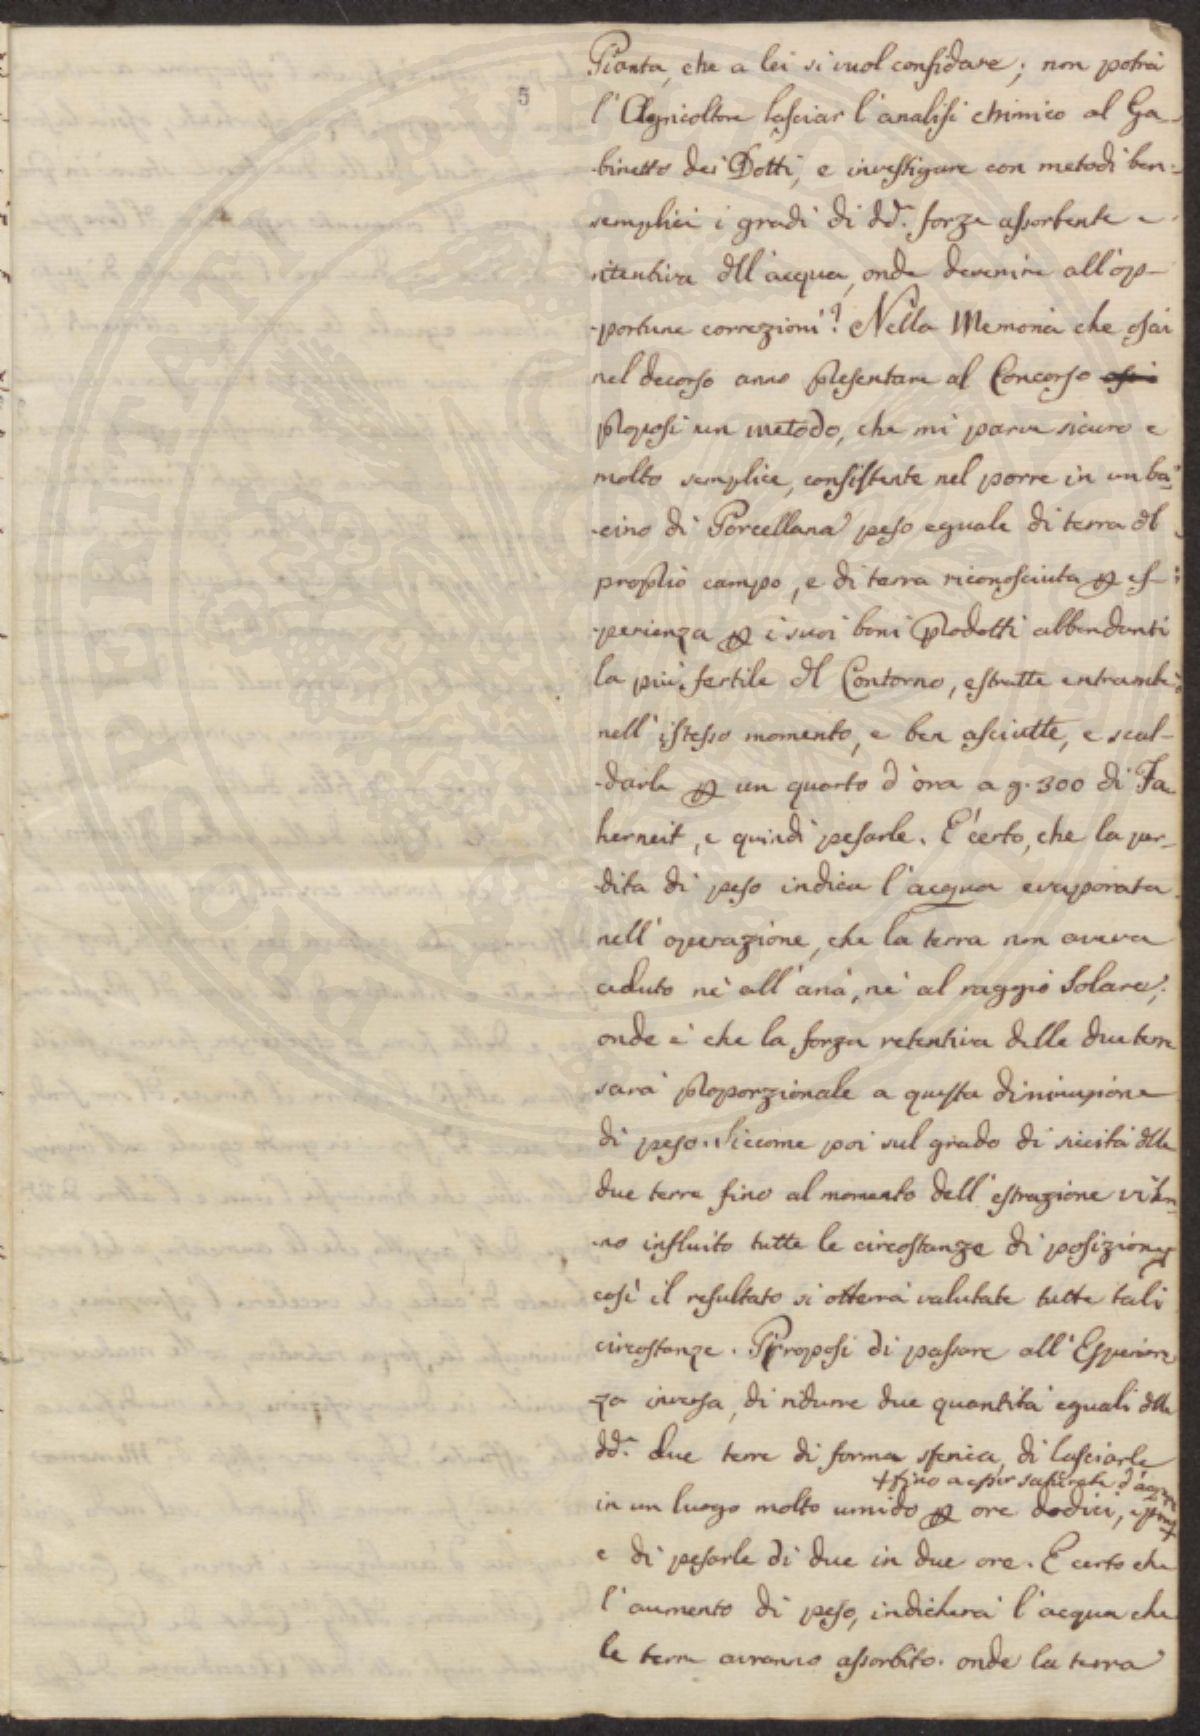 5
Pianta, che a lei si vuol confidare; non potrà
l'Agricoltore lasciar l'analisi chimico al Ga-
-binetto dei Dotti, e investigare con metodi ben
semplici i gradi di dd.ª forza assorbente e
ritentiva dll'acqua, onde devenire all'op-
-portune correzioni? Nella Memoria che osai
nel decorso anno presentare al Concorso
proposi un metodo, che mi parve sicuro e
molto semplice, consistente nel porre in un ba-
-cino di Porcellana peso eguale di terra dl
proprio campo, e di terra riconosciuta p es-
-perienza p i suoi boni prodotti abbondanti
la più fertile dl Contorno, estratte entrambe
nell'istesso momento, e ben asciutte, e scal-
-darle p un quarto d'ora a g. 300 di Fa-
herneit, e quindi pesarle. E' certo, che la per-
-dita di peso indica l'acqua evaporata
nell'operazione, che la terra non aveva
ceduto nè all'aria, nè al raggio Solare;
onde è che la forza retentiva delle due terre
sarà proporzionale a questa diminuzione
di peso. Siccome poi sul grado di siccità dlle
due terre fino al momento dell'estrazione vi han-
-no influito tutte le circostanze di posizione
così il resultato si otterrà valutate tutte tali
circostanze. Proposi di passare all'Esperien-
-za inversa, di ridurre due quantità eguali dlle
dd.ᵉ due terre di forma sferica, di lasciarle
+ fino a esser saturate d'acqua
in un luogo molto umido p ore dodici,
e di pesarle di due in due ore. E certo che
l'aumento di peso, indicherà l'acqua che
le terre avranno assorbito. onde la terra